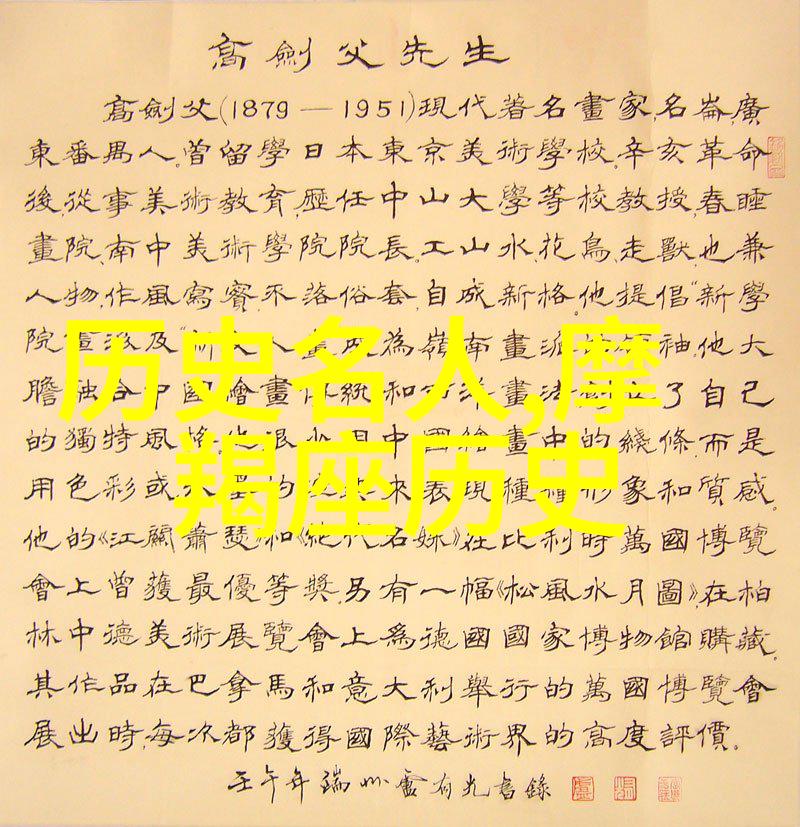 高劍父先生
高劍父(1879—1951)現代著名畫家,名崙,廣
東番禺人。曾留學日本東京美術學校。辛亥革命
後,從事美術教育,歷任中山大學等校教授,春睡
畫院、南中美術學院院長。工山水、花鳥、走獸,也兼
人物,作風寫實,不落俗套,自成新格。他提倡“新學
院畫派及“新文人畫 成為嶺南畫派 領袖。他大
膽融合中國繪畫傳統和西洋畫法 了自己
的獨特風格。他很 中國繪畫中的綫條,而是
用色彩或水墨的 來表現種種形象和質感。
他的《江關蕭瑟》和《絕代名姝》在比利時萬國博覽
會上曾獲最優等獎。另有一幅《松風水月圖》,在柏
林中德美術展覽會上爲德國國家博物館購藏。
其作品在巴拿馬和意大利舉行的萬國博覽會
展出時,每次都獲得國際藝術界的高度評價。
壬午年端州 有光書錄
历史名人,摩
羯座历史